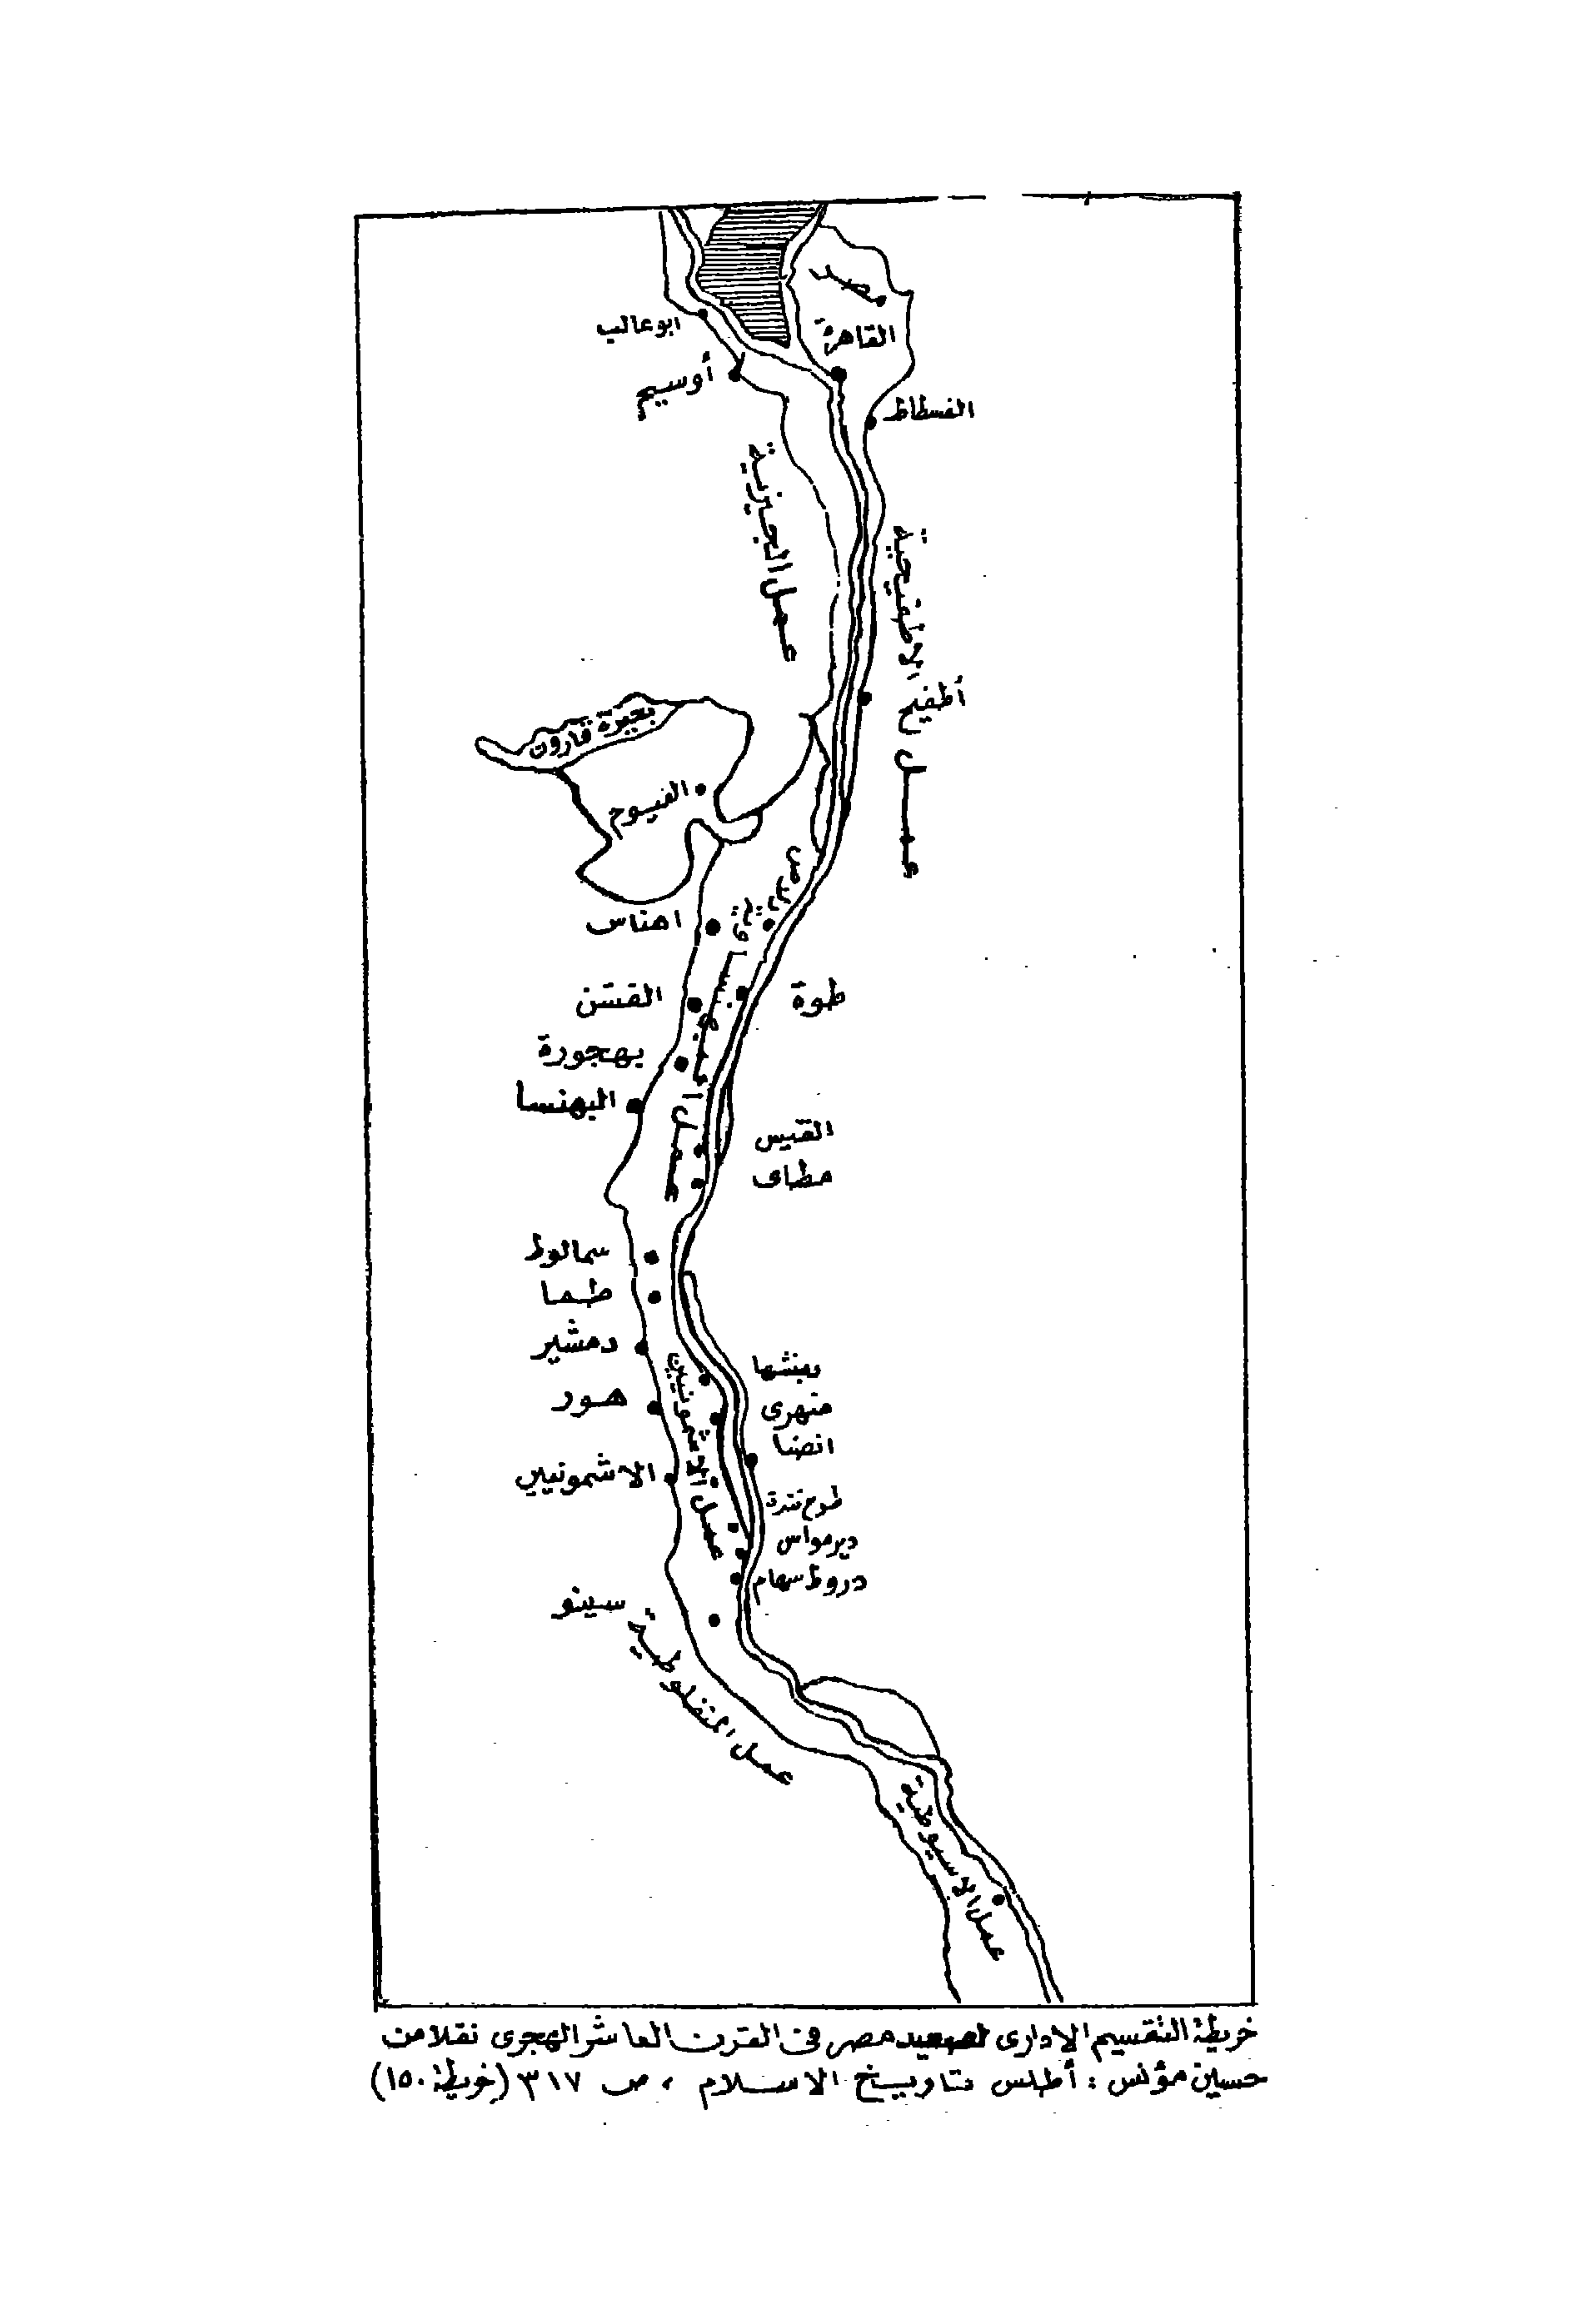 مصر
القاهرة
ابو عالب
أوسيم
الفسطاط
عمل الجيزية
عمل الاطفيحية
أطفيح
بحيرة قارون
الفيوم
بوصير
اهناس
طوة
القشن
بهجورة
البهنسا
عمل البهنساوية
القيس
مطاى
سمالوط
طحا
دمشير
منهرى
هور
انضنا
الاشمونيين
عمل الاشمونيين
ديرمواس
دروط سهام
سينو
عمل المنفلوطية
عمل الاسيوطية
خريطة التقسيم الادارى لصعيد مصر فى القرن العاشر الهجرى نقلا من
حسين مؤنس : أطلس تاريخ الاسلام ، ص ٣١٧ (خريطة ١٥٠)